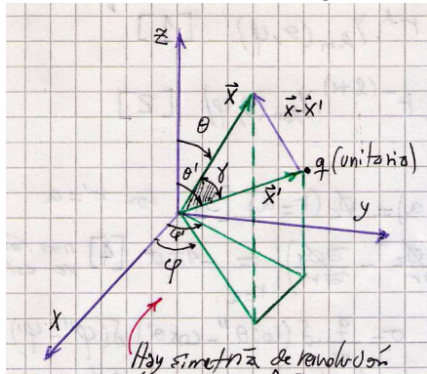 z
x⃗
x⃗-x⃗'
θ
θ'
γ
q (unitaria)
x⃗'
y
φ'
φ
x
Hay simetría de revolución